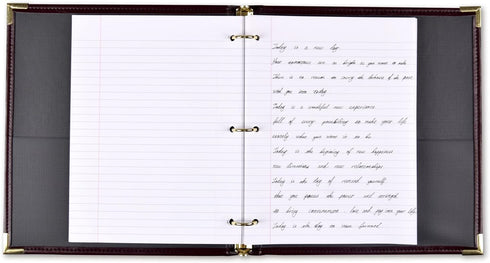 Today is a new day.
Your tomorrows are as bright as you want to make
There is no reason to carry the darkness of the past
with you into today
Today is a wonderful new experience
full of every possibility to make your life
exactly what you want it to be.
Today is the beginning of new happiness
new directions and new relationships.
Today is the day to remind yourself
that you possess the power and strength
to bring contentment love and joy into your life
Today is the day to